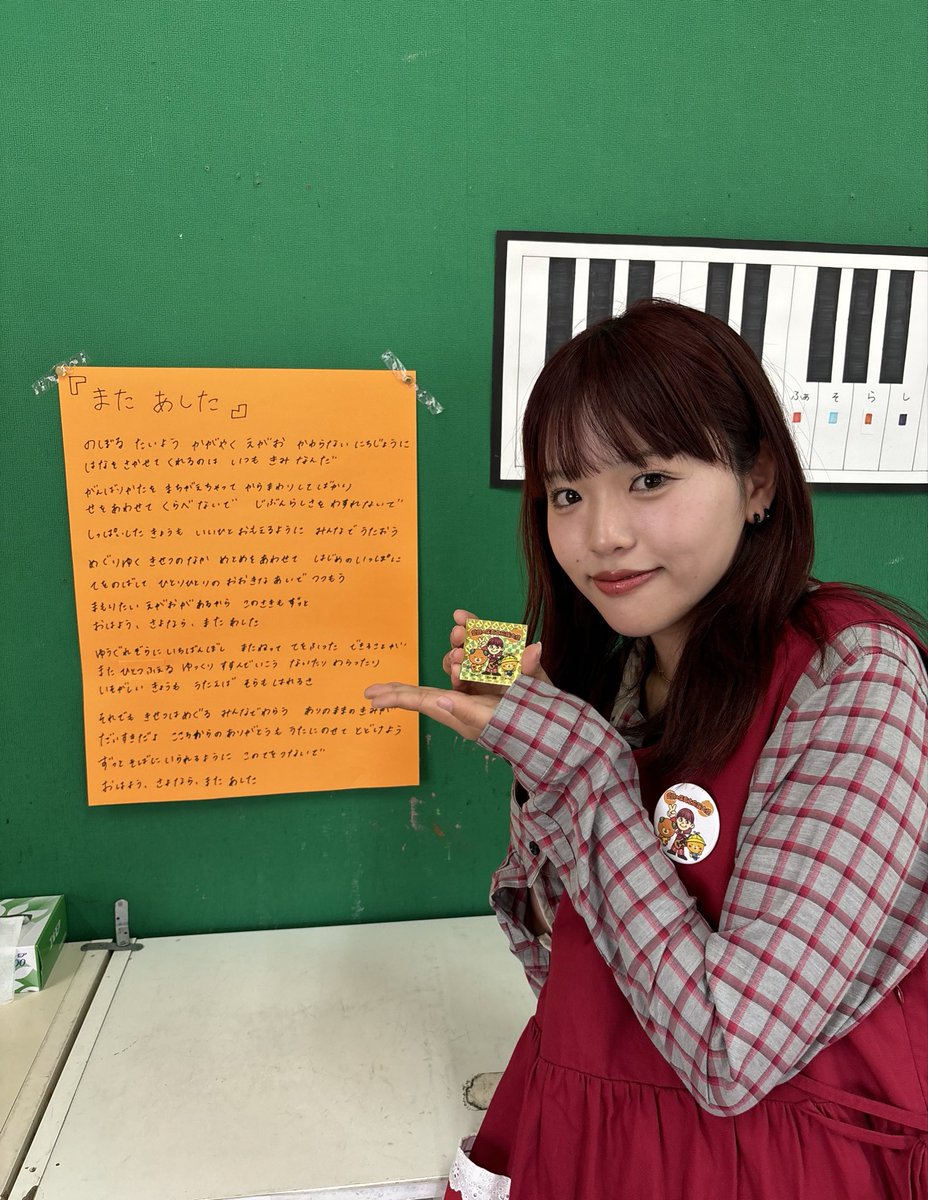 『また あした』
のぼる たいよう かがやく えがお かわらない にちじょうに
はなを さかせて くれるのは いつも きみ なんだ
がんばりかたを まちがえちゃって からまわりしてばかり
せをあわせて くらべないで じぶんらしさを わすれないで
しっぱいした きょうも いいひと おもえるように みんなで うたおう
めぐりゆく きせつのなか めとめをあわせて はじめのいっぽに
てをのばして ひとりひとりの おおきな あいで つつもう
まもりたい えがおがあるから このさきも ずっと
おはよう、さよなら、また あした
ゆうぐれぞらに いちばんぼし またねって てをふった できることが
また ひとつふえる ゆっくり すすんでいこう ないたり わらったり
いそがしい きょうも うたえば そらも はれるさ
それでも きせつは めぐる みんなでわらう ありのままの きみが
だいすきだよ こころからの ありがとうも うたにのせて とどけよう
ずっと そばに いられるように このてを つないで
おはよう、さよなら、また あした
ふぁ そ ら し